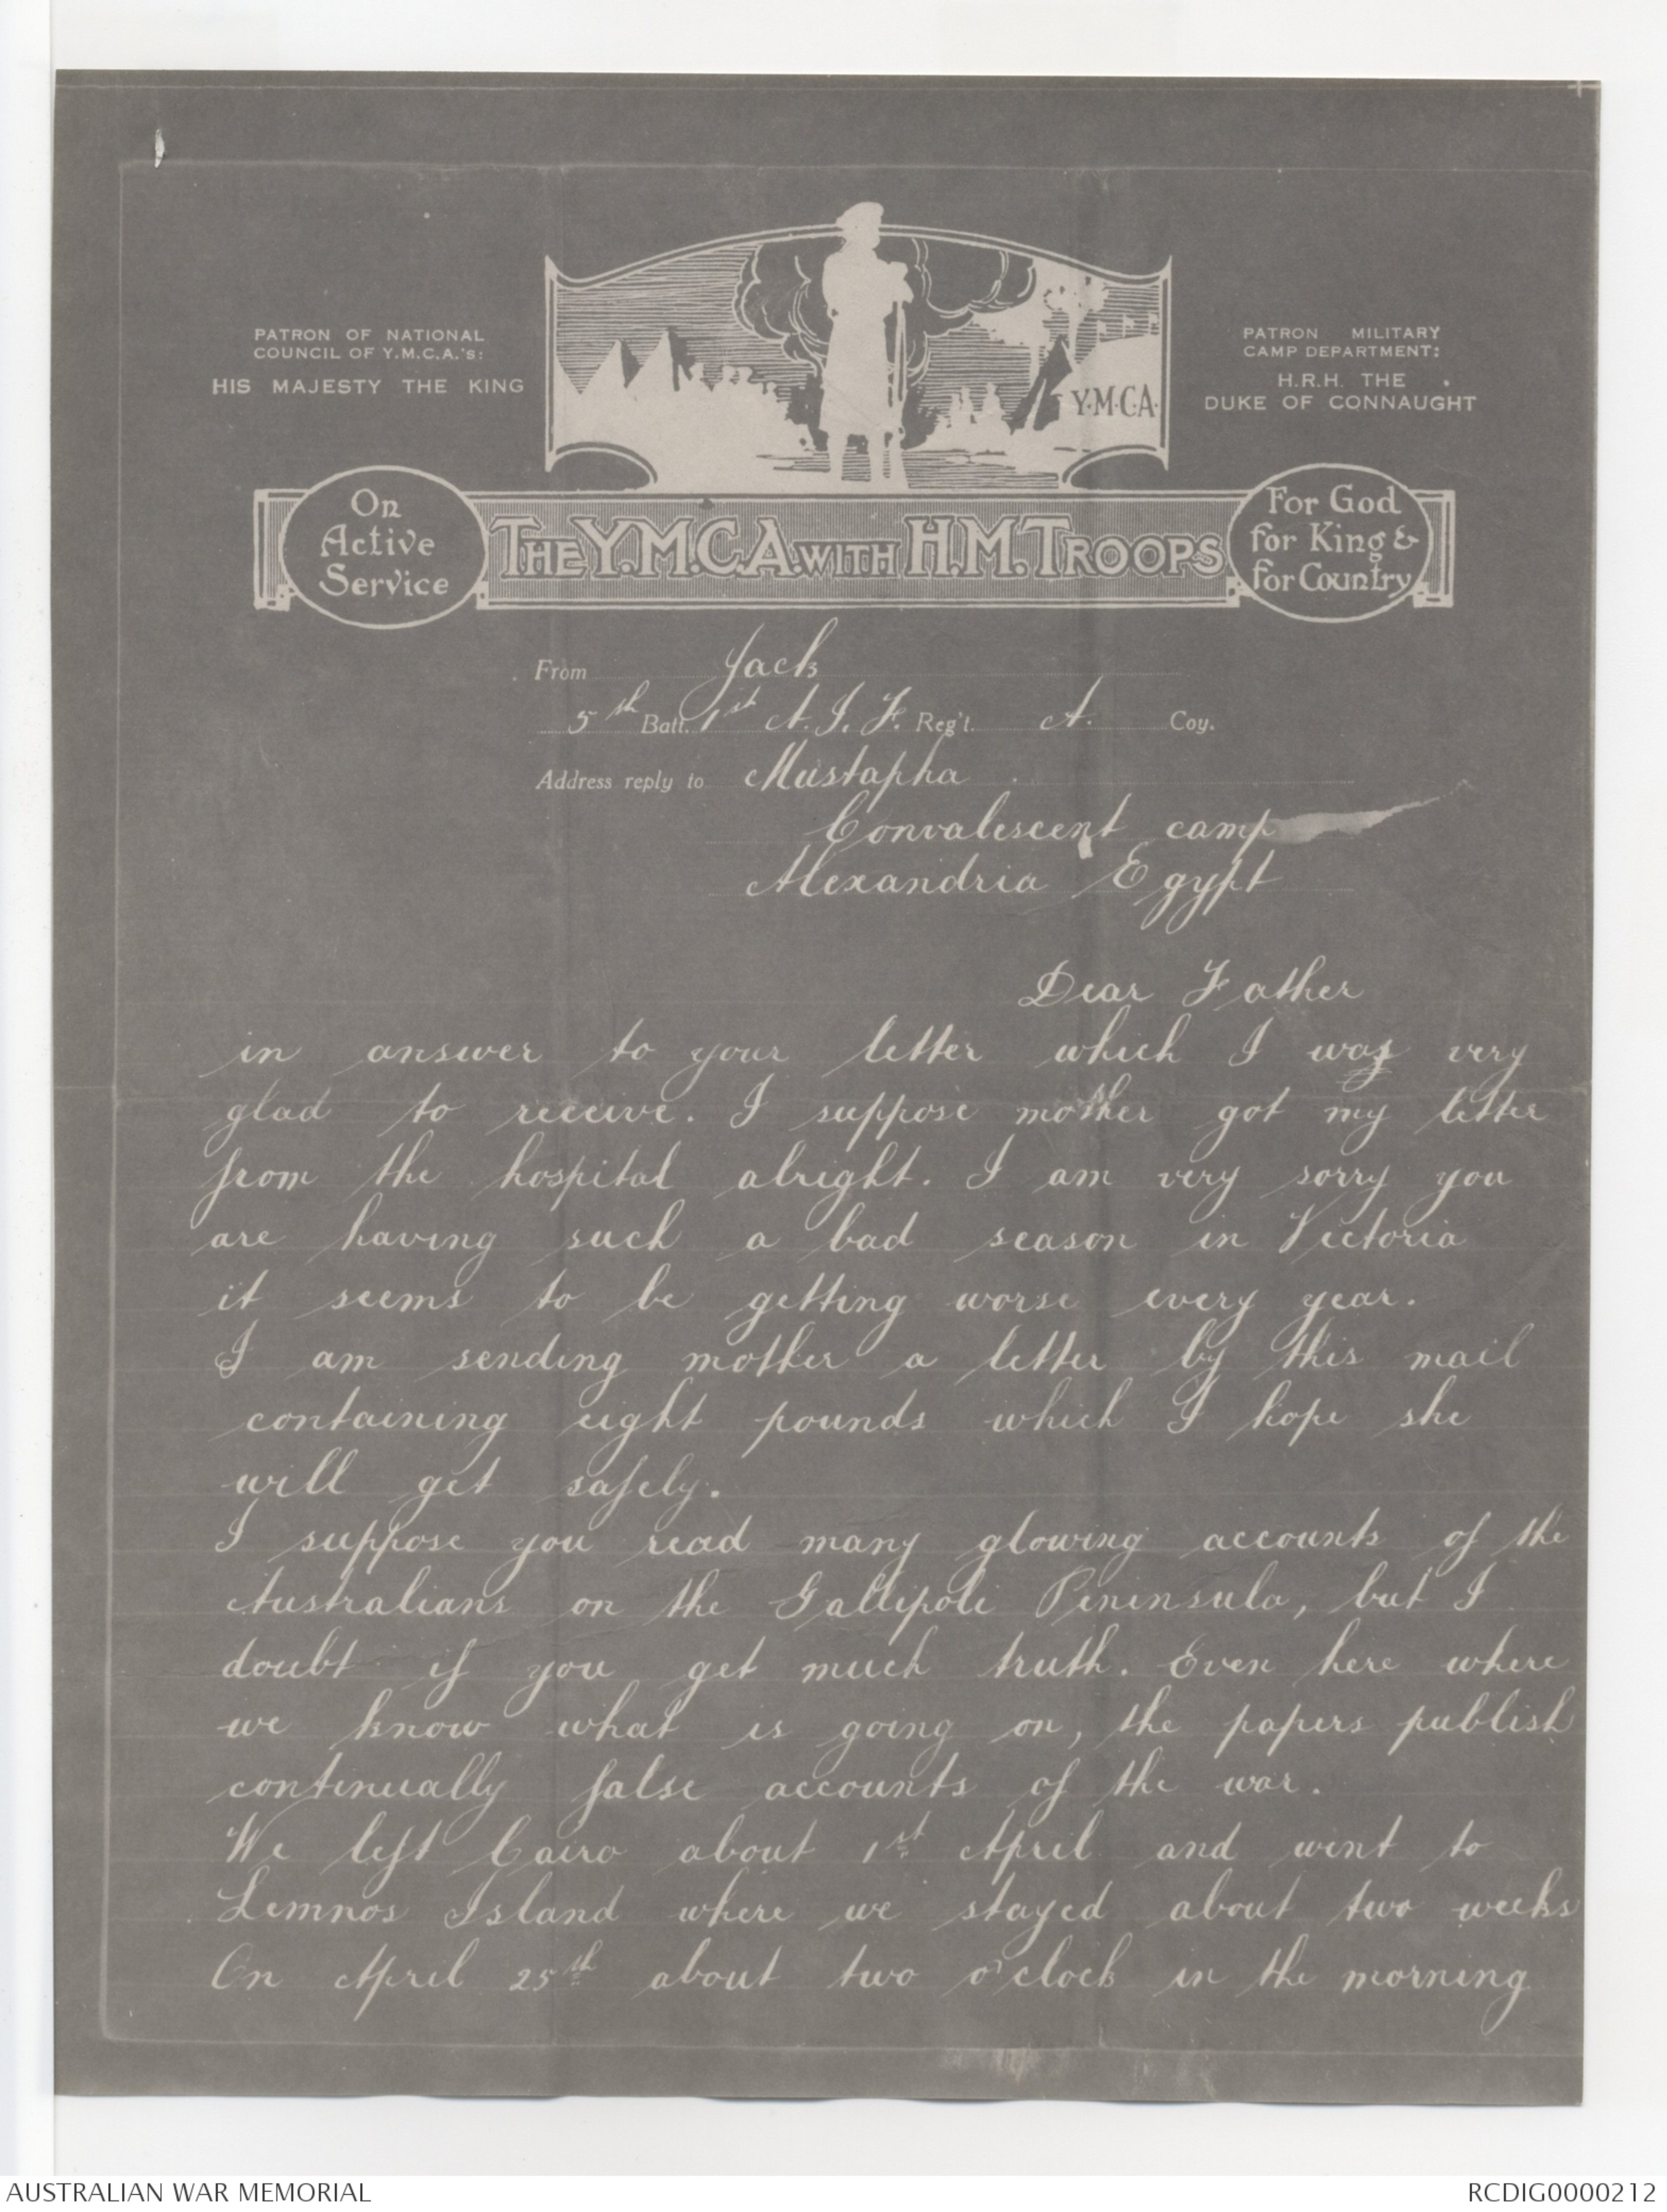 PATRON OF NATIONAL
COUNCIL OF Y.M.C.A.'s:
HIS MAJESTY THE KING
PATRON MILITARY
CAMP DEPARTMENT:
H.R.H. THE
DUKE OF CONNAUGHT
Y.M.C.A.
On
Active
Service
THE Y.M.C.A. WITH H.M. TROOPS
For God
for King &
for Country
From Jack
5th Batt. 1st A.I.F. Reg't. A. Coy.
Address reply to Mustapha
Convalescent camp
Alexandria Egypt
Dear Father
in answer to your letter which I was very
glad to receive. I suppose mother got my letter
from the hospital alright. I am very sorry you
are having such a bad season in Victoria
it seems to be getting worse every year.
I am sending mother a letter by this mail
containing eight pounds which I hope she
will get safely.
I suppose you read many glowing accounts of the
Australians on the Gallipoli Peninsula, but I
doubt if you get much truth. Even here where
we know what is going on, the papers publish
continually false accounts of the war.
We left Cairo about 1st April and went to
Lemnos Island where we stayed about two weeks
On April 25th about two o'clock in the morning
AUSTRALIAN WAR MEMORIAL
RCDIG0000212